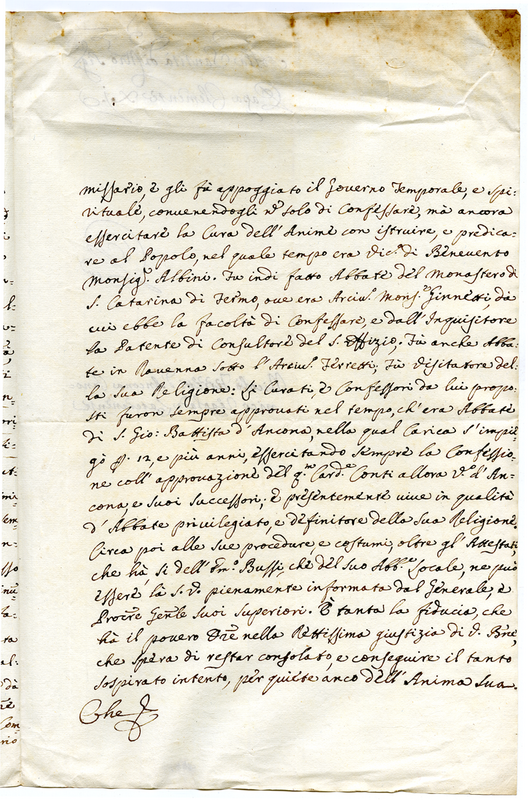 missario, e gli fù appoggiato il Governo Temporale, e Spi-
rituale, convenendogli nõ solo di Confessare, mà ancora
essercitare la Cura dell'Anime con istruire, e predica-
re al Popolo, nel quale tempo era di Benevento
Monsig.r Albini. Fù indi fatto Abbate del Monastero di
S. Catarina di Fermo, ove era Arciv.o Mons.r Ginnetti, da
cui ebbe la facoltà di Confessare, e dall'Inquisitore
la Patente di Consultore del S. Offizio, Fù anche Abba-
te in Ravenna sotto l'Arciv.o Ferretti, Fù Visitatore del-
la Sua Religione: Li Curati, e Confessori da lui propo-
sti furon sempre approvati nel tempo, ch'era Abbate
di S. Gio: Battista d'Ancona, nella qual Carica s'impie-
gò p. 12, e più anni, essercitando sempre la Confessio-
ne coll'approvazione del q.m Card.e Conti allora V.o d'An-
cona, e suoi Successori, e presentemente vive in qualità
d'Abbate privilegiato e Definitore della Sua Religione,
Circa poi alle Sue procedure, e costumi, oltre gl'Attestati,
che hà, si dell'Em.o Bussi, che del Suo Abb.e Locale, ne può
essere la S. V. pienamente informata dal Generale, e
Procr̃e Gen̄le Suoi Superiori. È tanta la fiducia, che
hà il povero Or̃e nella Rettissima giustizia di V. Bñe,
che spera di restar consolato, e conseguire il tanto
sospirato intento, per quiete anco dell'Anima Sua.
Che